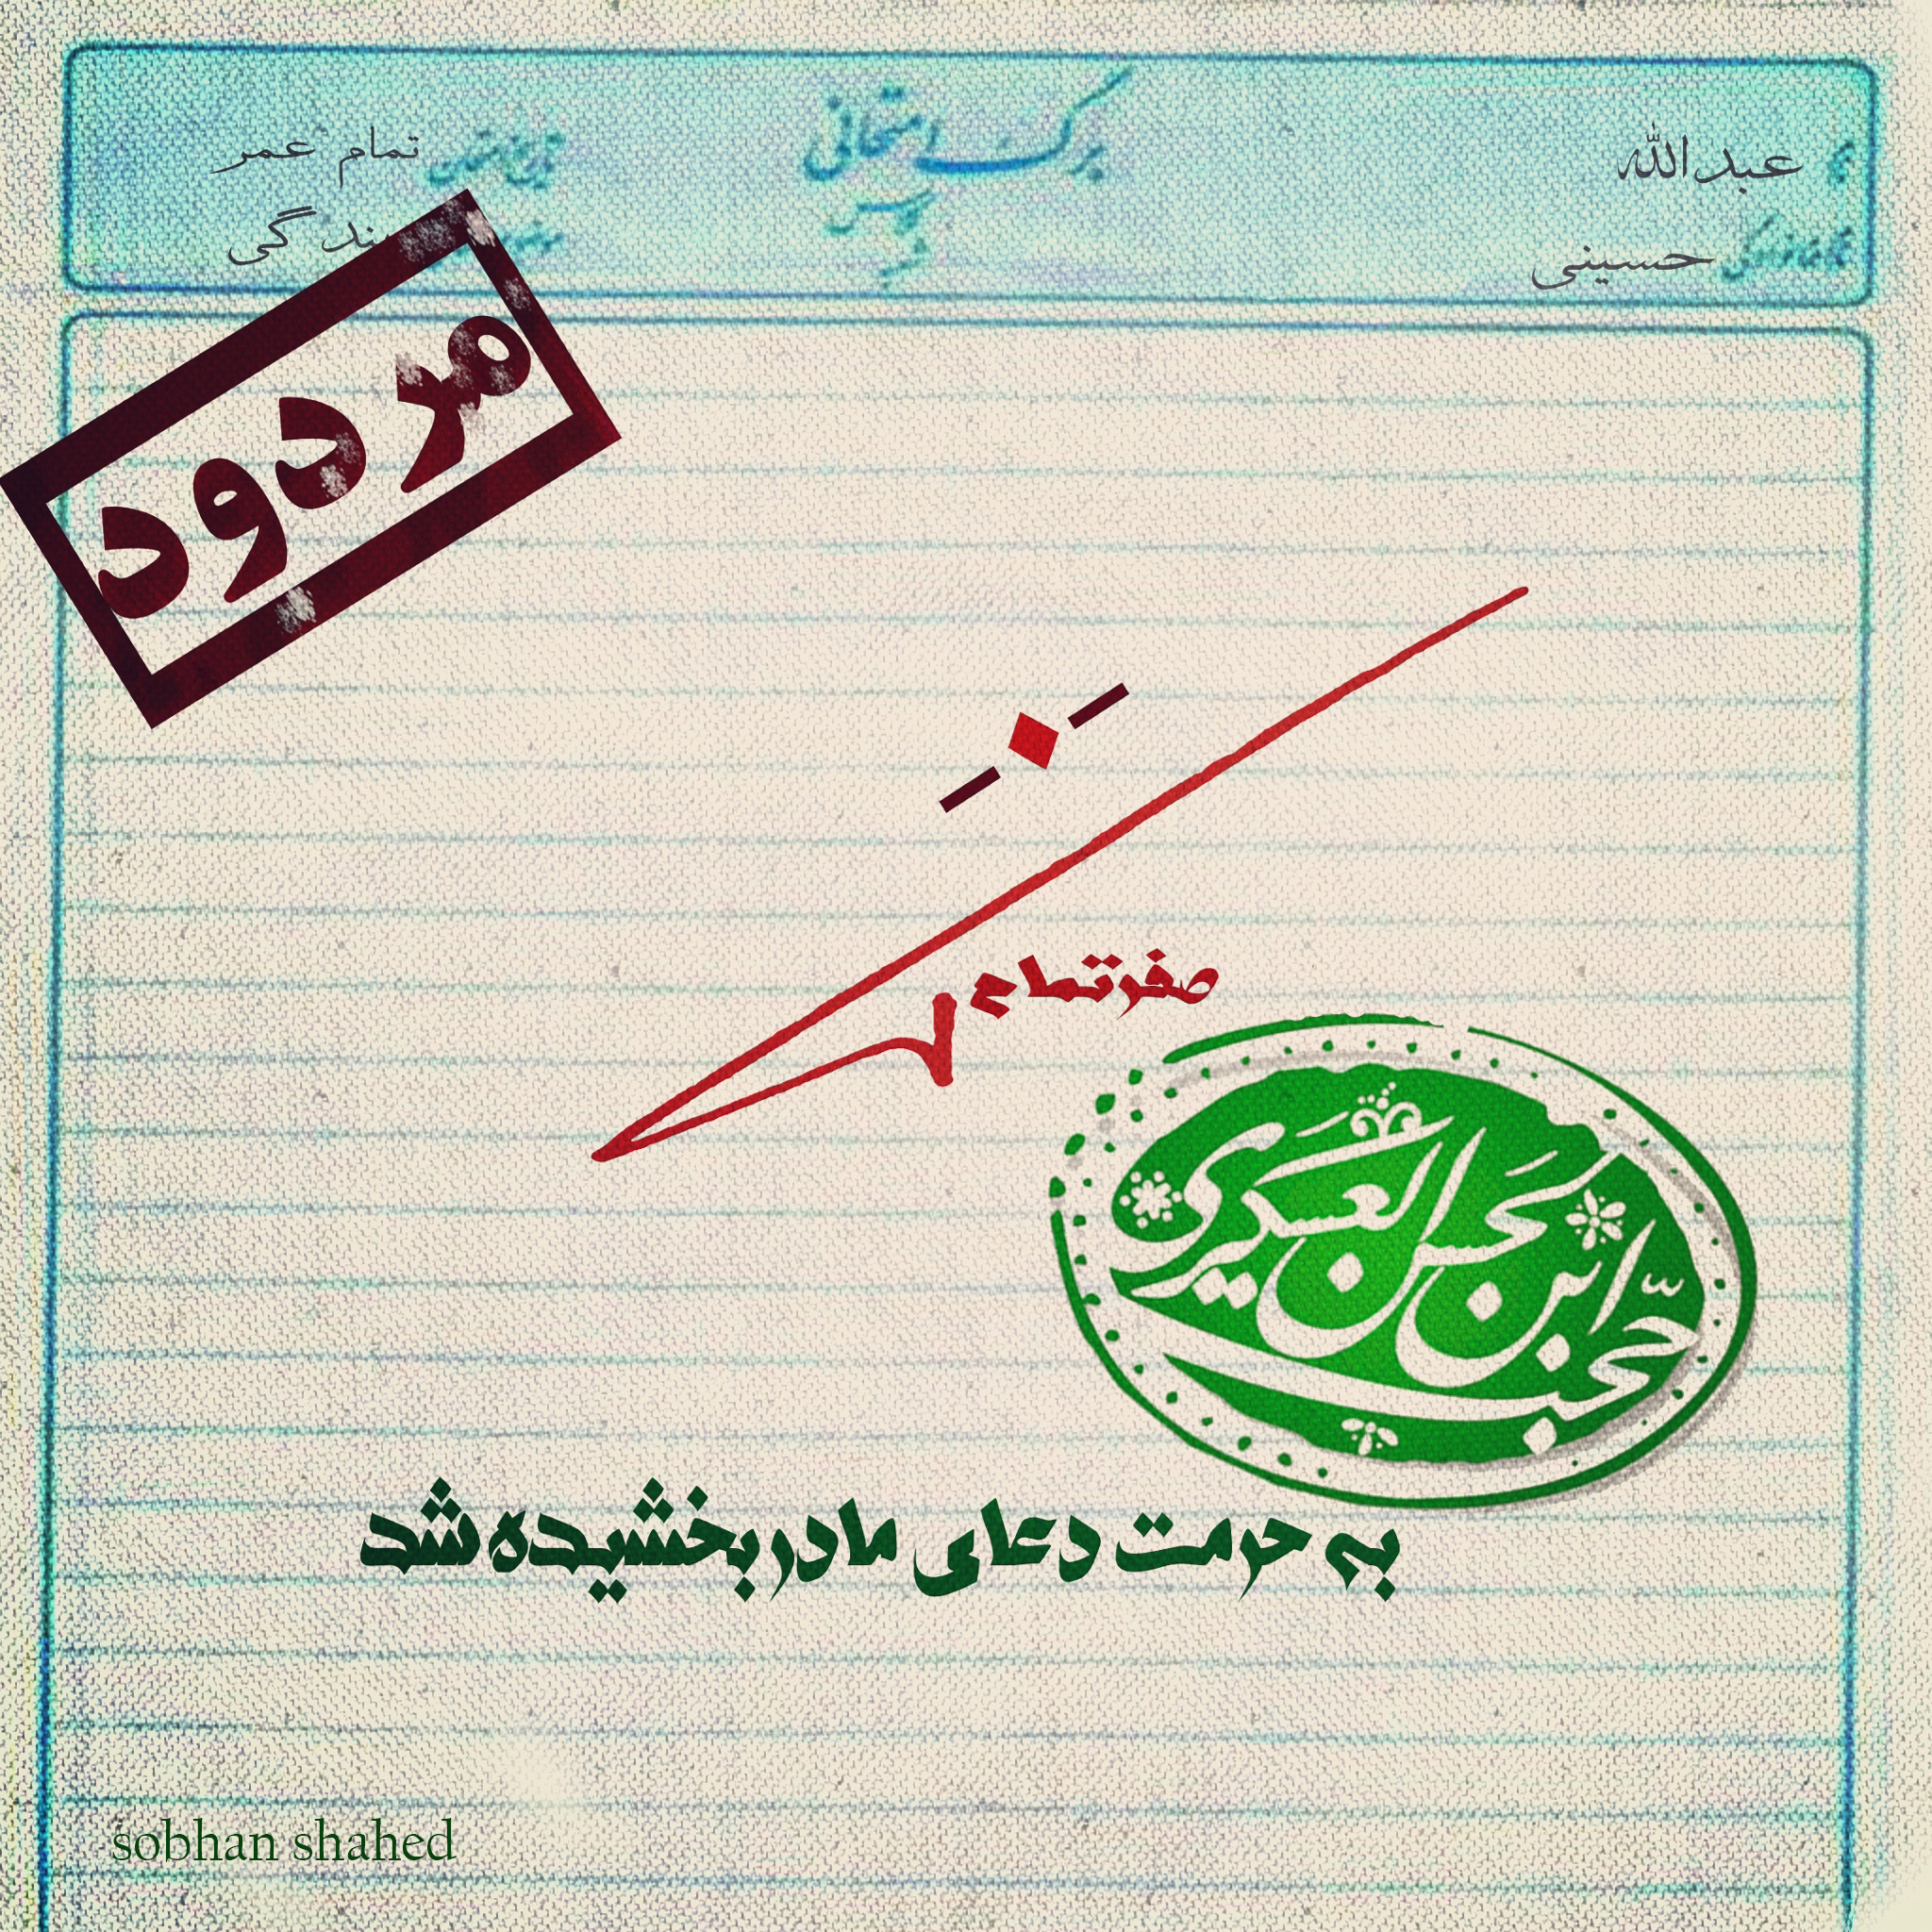 برگ امتحانی
نام عبدالله
نام خانوادگی حسینی
تمام عمر
بندگی
مردود
صفر تمام
حجت ابن الحسن العسکری
به حرمت دعای مادر بخشیده شد
sobhan shahed